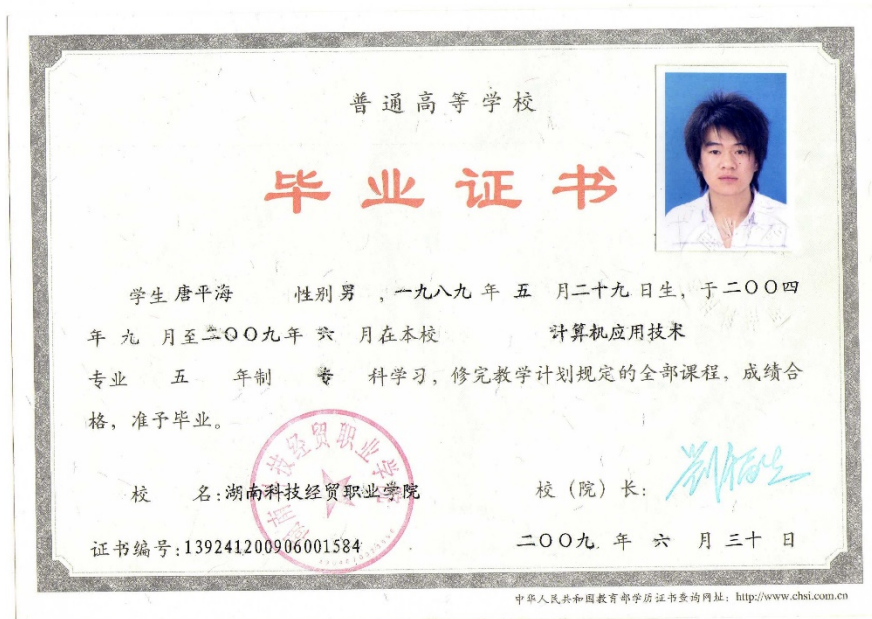 普通高等学校
毕业证书
学生 唐平海 性别 男 ，一九八九 年 五 月二十九 日生，于二〇〇四
年 九 月至二〇〇九年 六 月在本校 计算机应用技术
专业 五 年制 专 科学习，修完教学计划规定的全部课程，成绩合
格，准予毕业。
校 名：湖南科技经贸职业学院
校（院）长：
证书编号：139241200906001584
二〇〇九 年 六 月 三十 日
湖南科技经贸职业学院
中华人民共和国教育部学历证书查询网址：http://www.chsi.com.cn